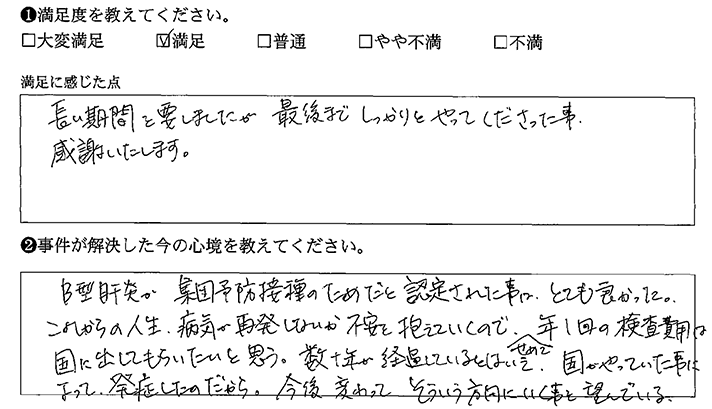 ❶満足度を教えてください。
□大変満足 ☑満足 □普通 □やや不満 □不満
満足に感じた点
長い期間を要しましたが 最後まで しっかりと やってくださった事.
感謝いたします。
❷事件が解決した今の心境を教えてください。
B型肝炎が 集団予防接種のためだと 認定された事は、とても良かった。
これからの人生、病気が再発しないか 不安を抱えていくので、年1回の検査費用は
国に出してもらいたいと思う。数十年が 経過しているとはいえ、せめて 国がやっていた事に
よって、発症したのだから。今後 変わって そういう方向にいく事を望んでいる。